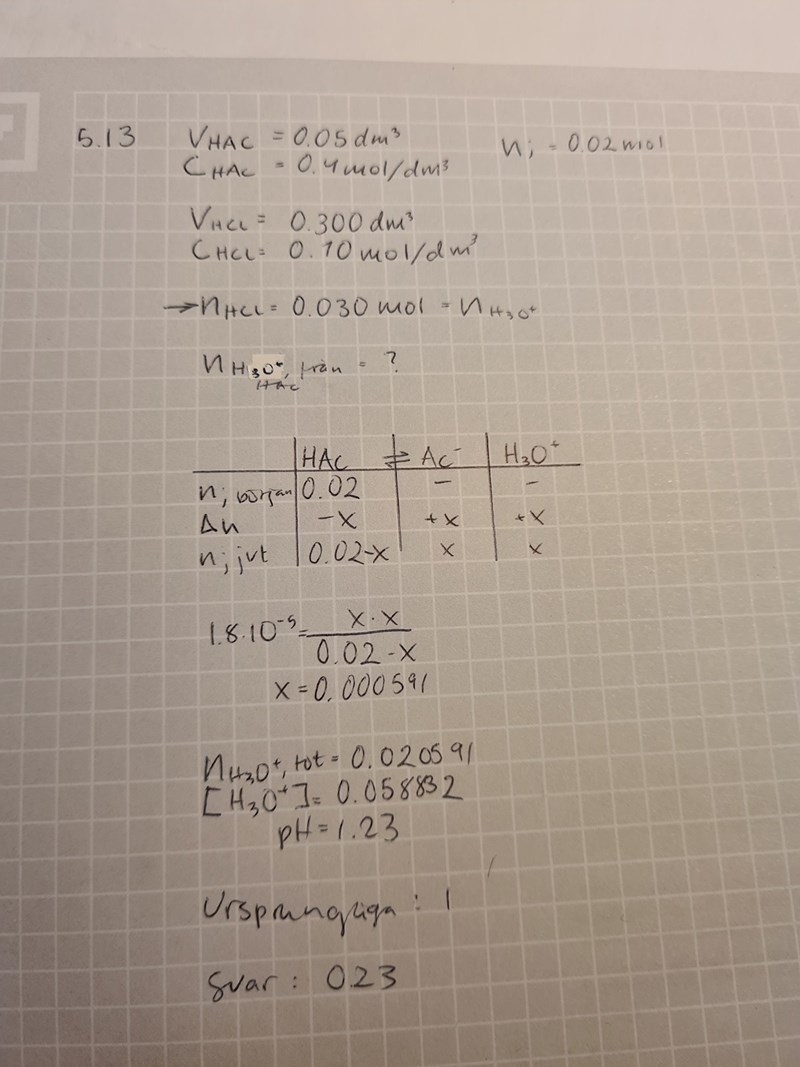 5.13 V HAC = 0.05 dm³ n; = 0.02 mol
C HAC = 0.4 mol/dm³
V HCL = 0.300 dm³
C HCL = 0.10 mol/dm³
→ n HCL = 0.030 mol = n H₃O⁺
n H₃O⁺, från HAC = ?
HAC ⇌ Ac⁻ H₃O⁺
n; början 0.02 - -
Δn -x +x +x
n; jvt 0.02-x x x
1.8·10⁻⁵ = x·x / 0.02-x
x = 0,000591
n H₃O⁺, tot = 0.020591
[H₃O⁺] = 0.058832
pH = 1.23
Ursprungliga : 1
Svar : 0.23